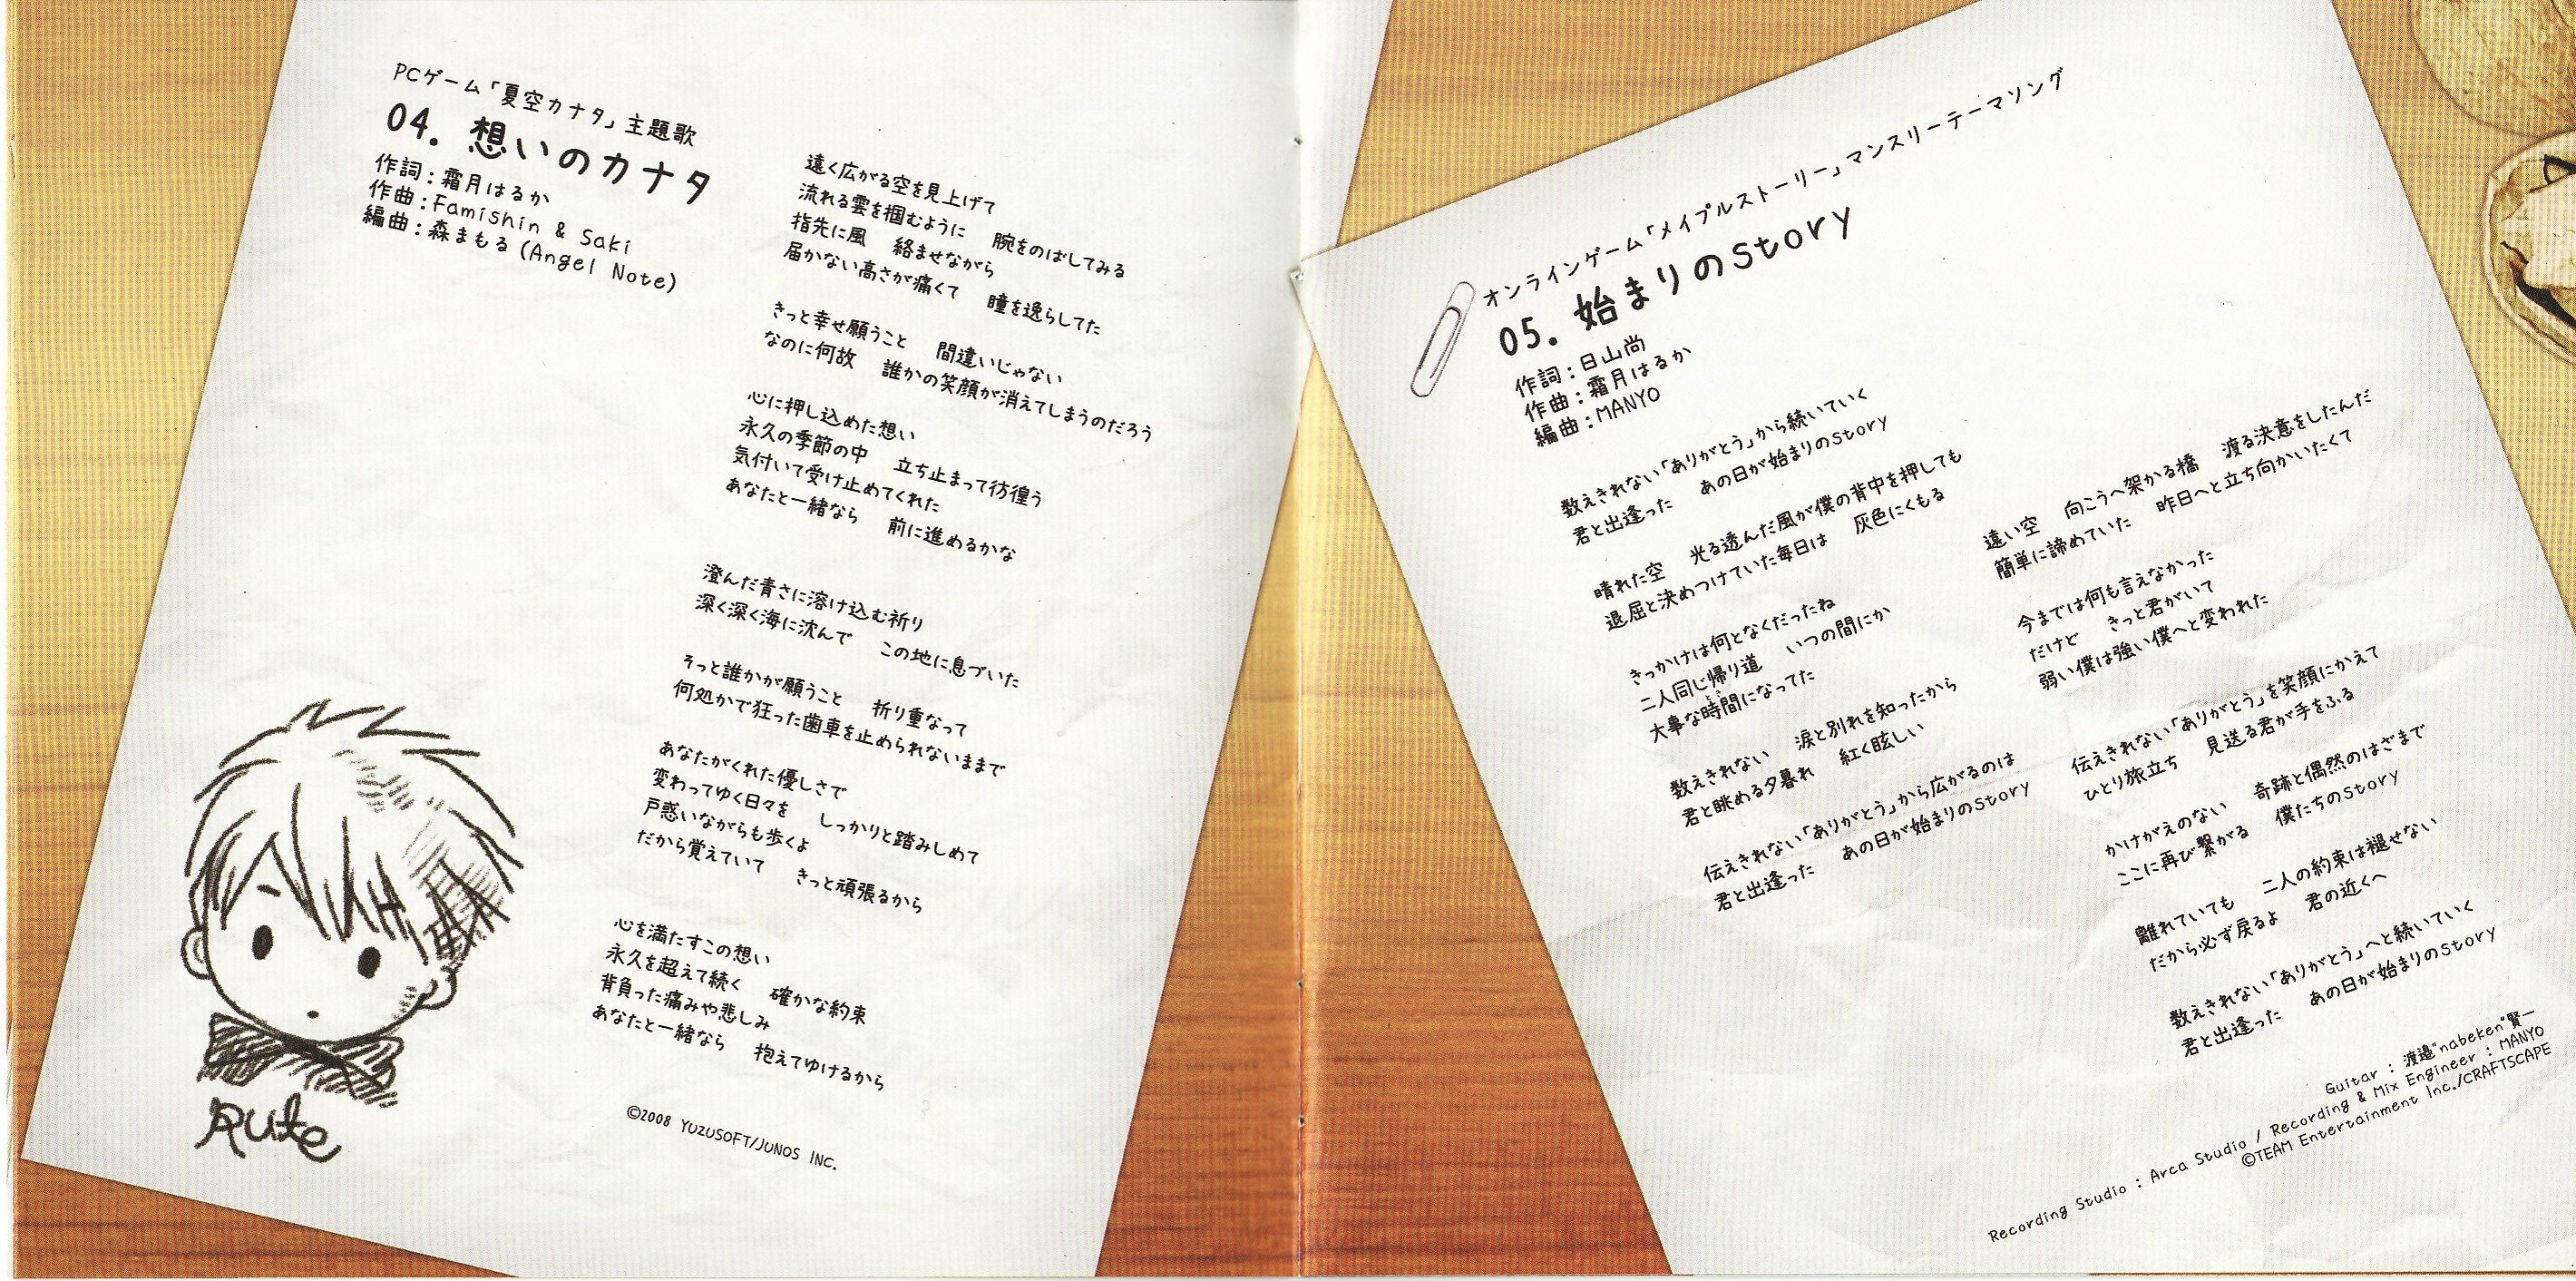 PCゲーム「夏空カナタ」主題歌
04. 想いのカナタ
作詞:霜月はるか
作曲:Famishin & Saki
編曲:森まもる (Angel Note)
遠く広がる空を見上げて
流れる雲を掴むように　腕をのばしてみる
指先に風　絡ませながら
届かない高さが痛くて　瞳を逸らしてた
きっと幸せ願うこと　間違いじゃない
なのに何故　誰かの笑顔が消えてしまうのだろう
心に押し込めた想い
永久の季節の中　立ち止まって彷徨う
気付いて受け止めてくれた
あなたと一緒なら　前に進めるかな
澄んだ青さに溶け込む祈り
深く深く海に沈んで　この地に息づいた
そっと誰かが願うこと　折り重なって
何処かで狂った歯車を止められないままで
あなたがくれた優しさで
変わってゆく日々を　しっかりと踏みしめて
戸惑いながらも歩くよ
だから覚えていて　きっと頑張るから
心を満たすこの想い
永久を超えて続く　確かな約束
背負った痛みや悲しみ
あなたと一緒なら　抱えてゆけるから
©2008 YUZUSOFT/JUNOS INC.
Rute
オンラインゲーム「メイプルストーリー」マンスリーテーマソング
05. 始まりのstory
作詞:日山尚
作曲:霜月はるか
編曲:MANYO
数えきれない「ありがとう」から続いていく
君と出逢った　あの日が始まりのstory
晴れた空　光る透んだ風が僕の背中を押しても
退屈と決めつけていた毎日は　灰色にくもる
きっかけは何となくだったね
二人同じ帰り道　いつの間にか
大事な時間になってた
数えきれない　涙と別れを知ったから
君と眺める夕暮れ　紅く眩しい
伝えきれない「ありがとう」から広がるのは
君と出逢った　あの日が始まりのstory
遠い空　向こうへ架かる橋　渡る決意をしたんだ
簡単に諦めていた　昨日へと立ち向かいたくて
今までは何も言えなかった
だけど　きっと君がいて
弱い僕は強い僕へと変われた
伝えきれない「ありがとう」を笑顔にかえて
ひとり旅立ち　見送る君が手をふる
かけがえのない　奇跡と偶然のはざまで
ここに再び繋がる　僕たちのstory
離れていても　二人の約束は褪せない
だから必ず戻るよ　君の近くへ
数えきれない「ありがとう」へと続いていく
君と出逢った　あの日が始まりのstory
Guitar : 渡邉"nabeken"賢一
Recording Studio : Arca Studio / Recording & Mix Engineer : MANYO
©TEAM Entertainment Inc./CRAFTSCAPE